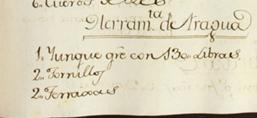 Herram.ta de Fragua
1. Yunque gre con 130 Libras
2. Tornillos
2.